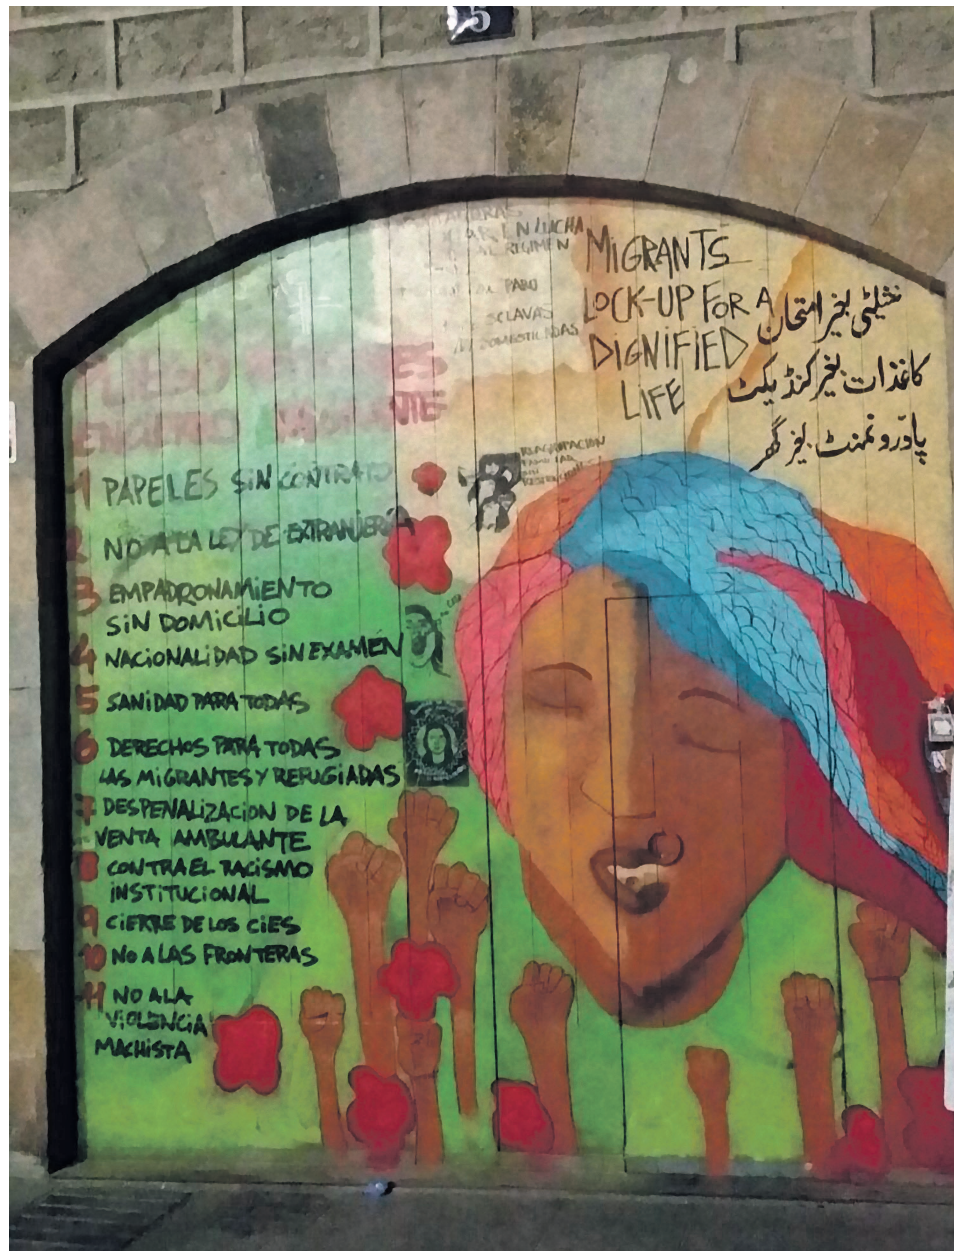 5
EN LUCHA
AL RÉGIMEN
ESCLAVAS
NI DOMESTICADAS
MIGRANTS
LOCK-UP FOR A
DIGNIFIED
LIFE
بغیر امتحان
کاغذات بغیر کنڈیکٹ
بغیر گھر
1 PAPELES SIN CONTRATO
2 NO A LA LEY DE EXTRANJERÍA
3 EMPADRONAMIENTO
SIN DOMICILIO
4 NACIONALIDAD SIN EXAMEN
5 SANIDAD PARA TODAS
6 DERECHOS PARA TODAS
LAS MIGRANTES Y REFUGIADAS
7 DESPENALIZACIÓN DE LA
VENTA AMBULANTE
8 CONTRA EL RACISMO
INSTITUCIONAL
9 CIERRE DE LOS CIES
10 NO A LAS FRONTERAS
11 NO A LA
VIOLENCIA
MACHISTA
REAGRUPACION
FAMILIAR
SIN